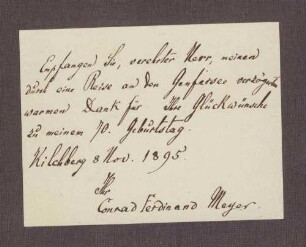 Empfangen Sie, verehrter Herr, meinen
durch eine Reise an den Genfersee verzögerten
warmen Dank für Ihre Glückwünsche
zu meinem 70. Geburtstag.
Kilchberg 8 Nov. 1895.
Ihr
Conrad Ferdinand Meyer.